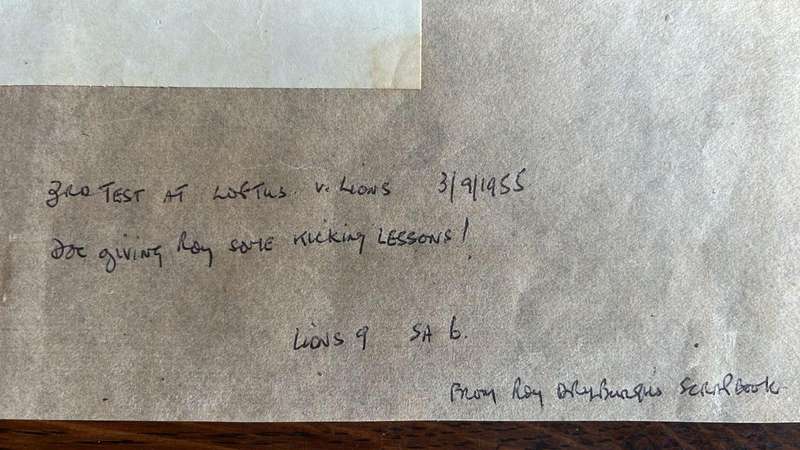 3RD TEST AT LOFTUS v. LIONS 3/9/1955
Doc giving Roy some kicking LESSONS!
LIONS 9 SA 6.
From Roy Dryburghs SCRAPBOOK